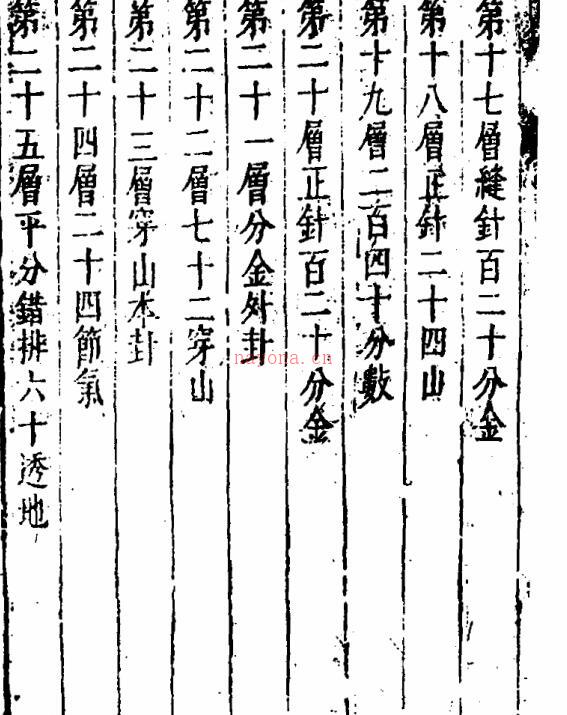 第十七層縫針百二十分金
第十八層正針二十四山
第十九層二百四十分數
第二十層正針百二十分金
第二十一層分金外卦
第二十二層七十二穿山
第二十三層穿山本卦
第二十四層二十四節氣
第二十五層平分錯排六十透地
nayona.cn